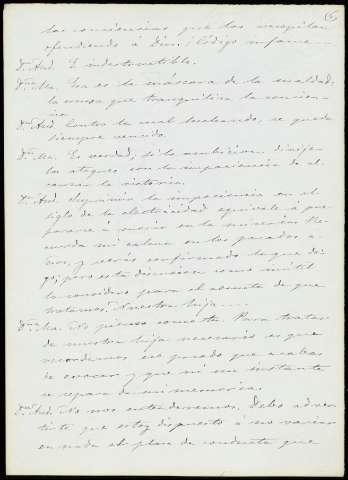 6
las conciencias que las recopilan
ofendiendo a Dios. ¡Código infame
Dn And. E indestructible.
Dña Ma. Esa es la máscara de la maldad,
la musa que tranquiliza la concien-
cia.
Dn And. Contra la cual luchando, se queda
siempre vencido.
Dña Ma. Es verdad, si la ambicion dirije
los ataques con la impaciencia de al-
canzar la victoria.
Dn And. Suprimir la impaciencia en el
siglo de la electricidad equivale á pre-
pararse á morir en la miseria. Re-
cuerda mi calma en los pasados a-
ños, y verás confirmado lo que di-
go; pero esta discusion como inútil
la considero para el asunto de que
tratamos. Nuestra hija....
Dña Ma. No pienso como tú. Para tratar
de nuestra hija necesario es que
recordemos ese pasado que acabas
de evocar y que ni un instante
se separa de mi memoria.
Dn And. No nos entenderemos. Debo adver-
tirte que estoy dispuesto á no variar
en nada el plan de conducta que